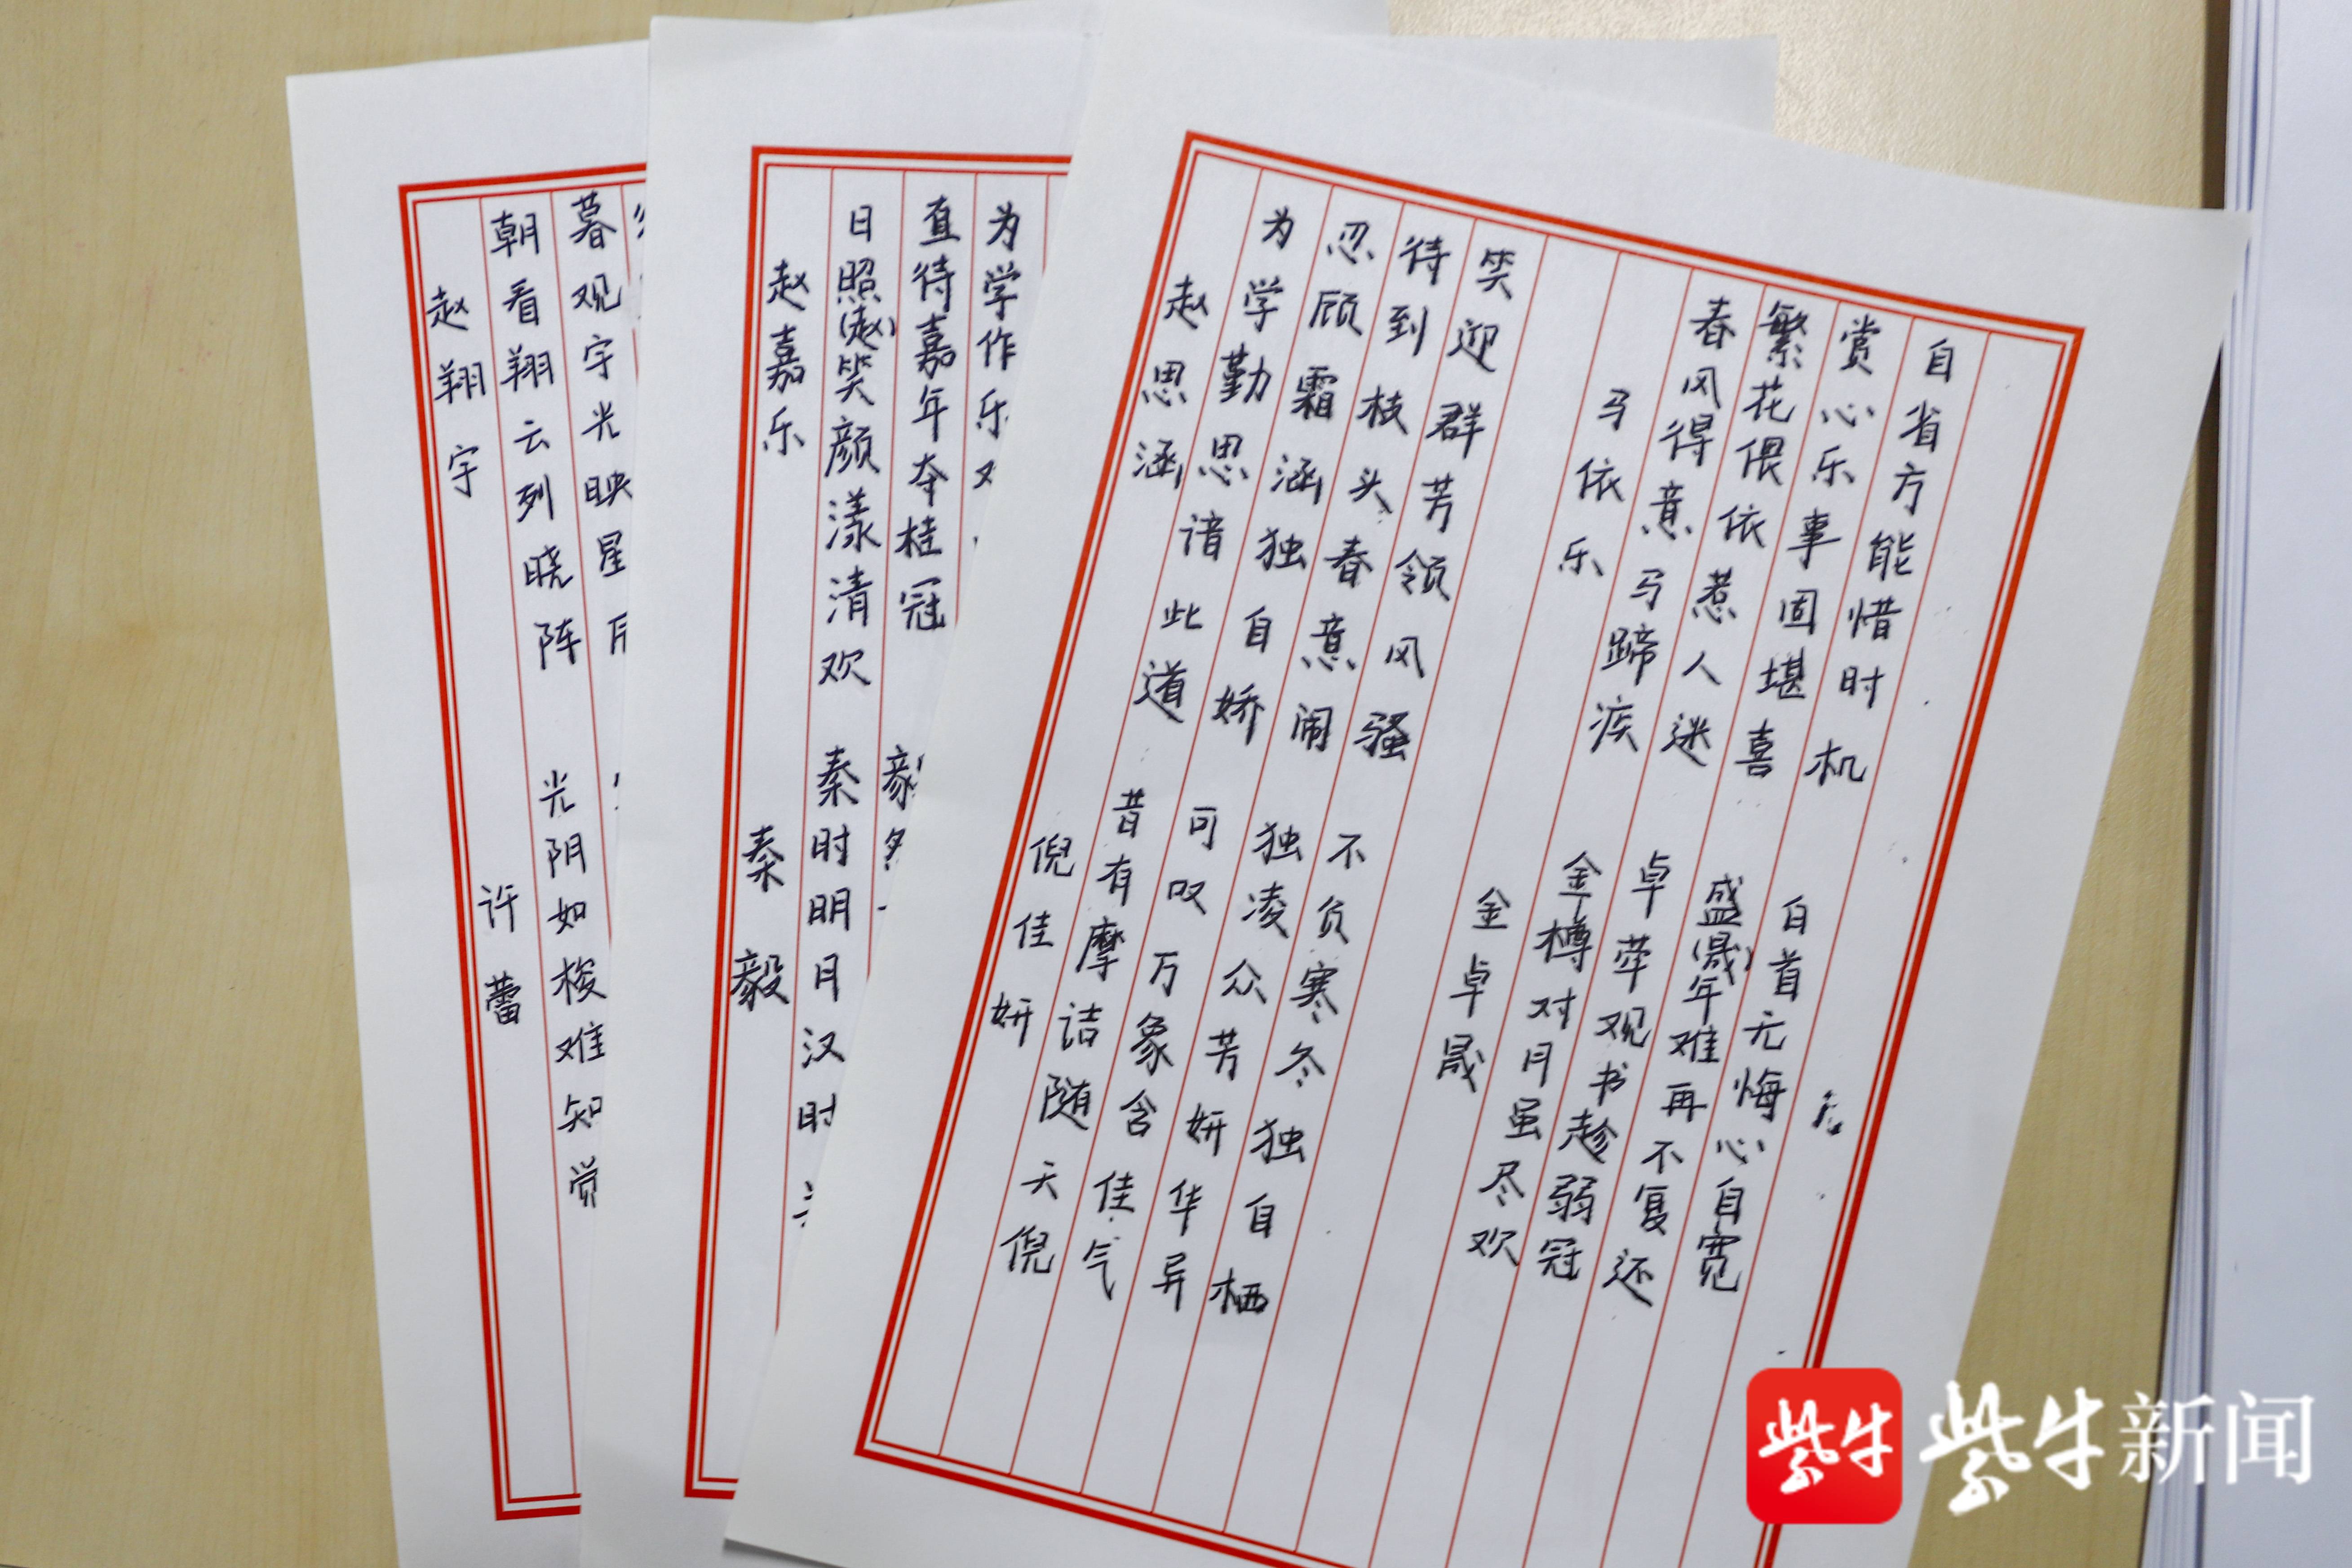 赵翔宇
朝看翔云列晓阵
暮观宇光映星
许蕾
光阴如梭难知觉
赵嘉乐
日照(赵)笑颜漾清欢
直待嘉年夺桂冠
为学作乐
秦毅
秦时明月汉时
毅
赵思涵
为学勤思谙此道
忍顾霜涵独自娇
待到枝头春意闹
笑迎群芳领风骚
倪佳妍
昔有摩诘随天倪
可叹万象含佳气
独凌众芳妍华异
不负寒冬独自栖
马依乐
春风得意马蹄疾
繁花偎依惹人迷
赏心乐事固堪喜
自省方能惜时机
金卓晟
金樽对月虽尽欢
卓荦观书趁弱冠
盛(晟)年难再不复还
白首无悔心自宽
紫牛
紫牛新闻